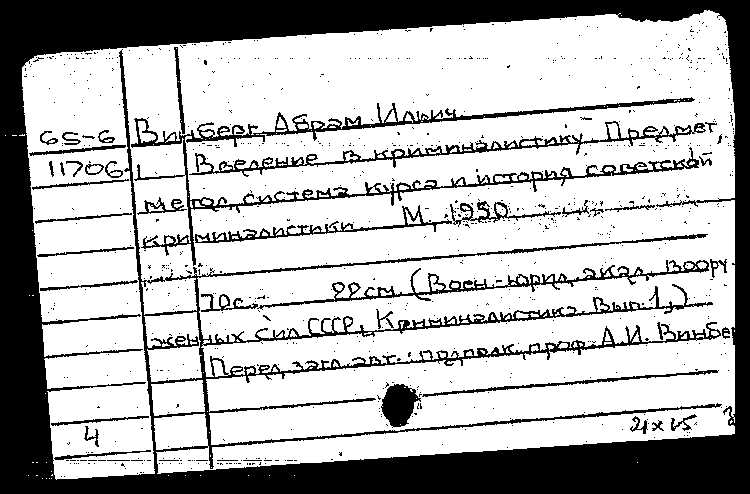 65-6 Винберг, Абрам Ильич
11706. Введение в криминалистику. Предмет,
метод, система курса и история советской
криминалистики. М, 1950
70с. 22см (Воен.-юрид. акад. Воору-
женных сил СССР, Криминалистика. Вып. 1,)
Перед загл. авт.: подполк. проф. А.И. Винбе
4
21х15